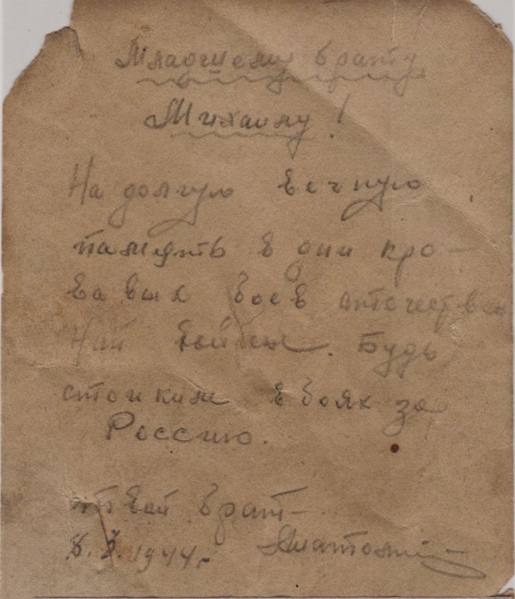 Младшему брату
Михаилу!
На долгую вечную
память в дни кро-
вавых боев аточествен
Най войны. Будь
стоиким в боях за
Россию.
твой брат-
1944г. Анатолий